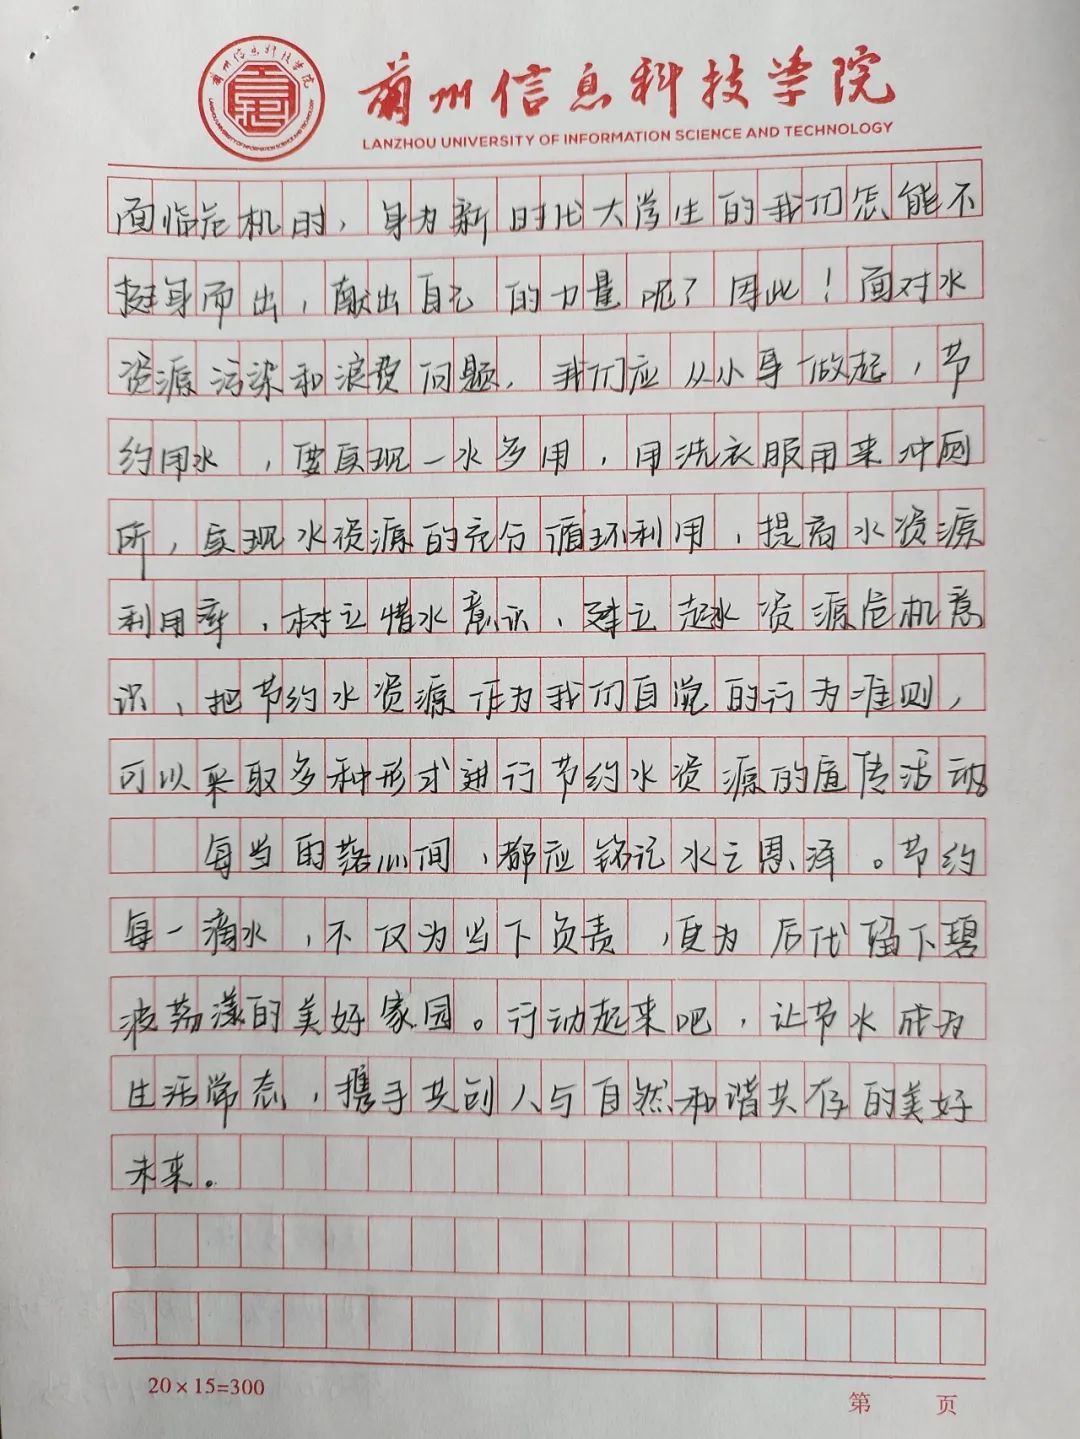 兰州信息科技学院
LANZHOU UNIVERSITY OF INFORMATION SCIENCE AND TECHNOLOGY
面临危机时，身为新时代大学生的我们怎能不
挺身而出，献出自己的力量呢？因此！面对水
资源污染和浪费问题，我们应从小事做起，节
约用水，要实现一水多用，用洗衣服用来冲厕
所，实现水资源的充分循环利用，提高水资源
利用率，树立惜水意识，建立起水资源危机意
识，把节约水资源作为我们自觉的行为准则，
可以采取多种形式进行节约水资源的宣传活动
每当雨落心间，都应铭记水之恩泽。节约
每一滴水，不仅为当下负责，更为后代留下碧
波荡漾的美好家园。行动起来吧，让节水成为
生活常态，携手共创人与自然和谐共存的美好
未来。
20×15=300
第 页